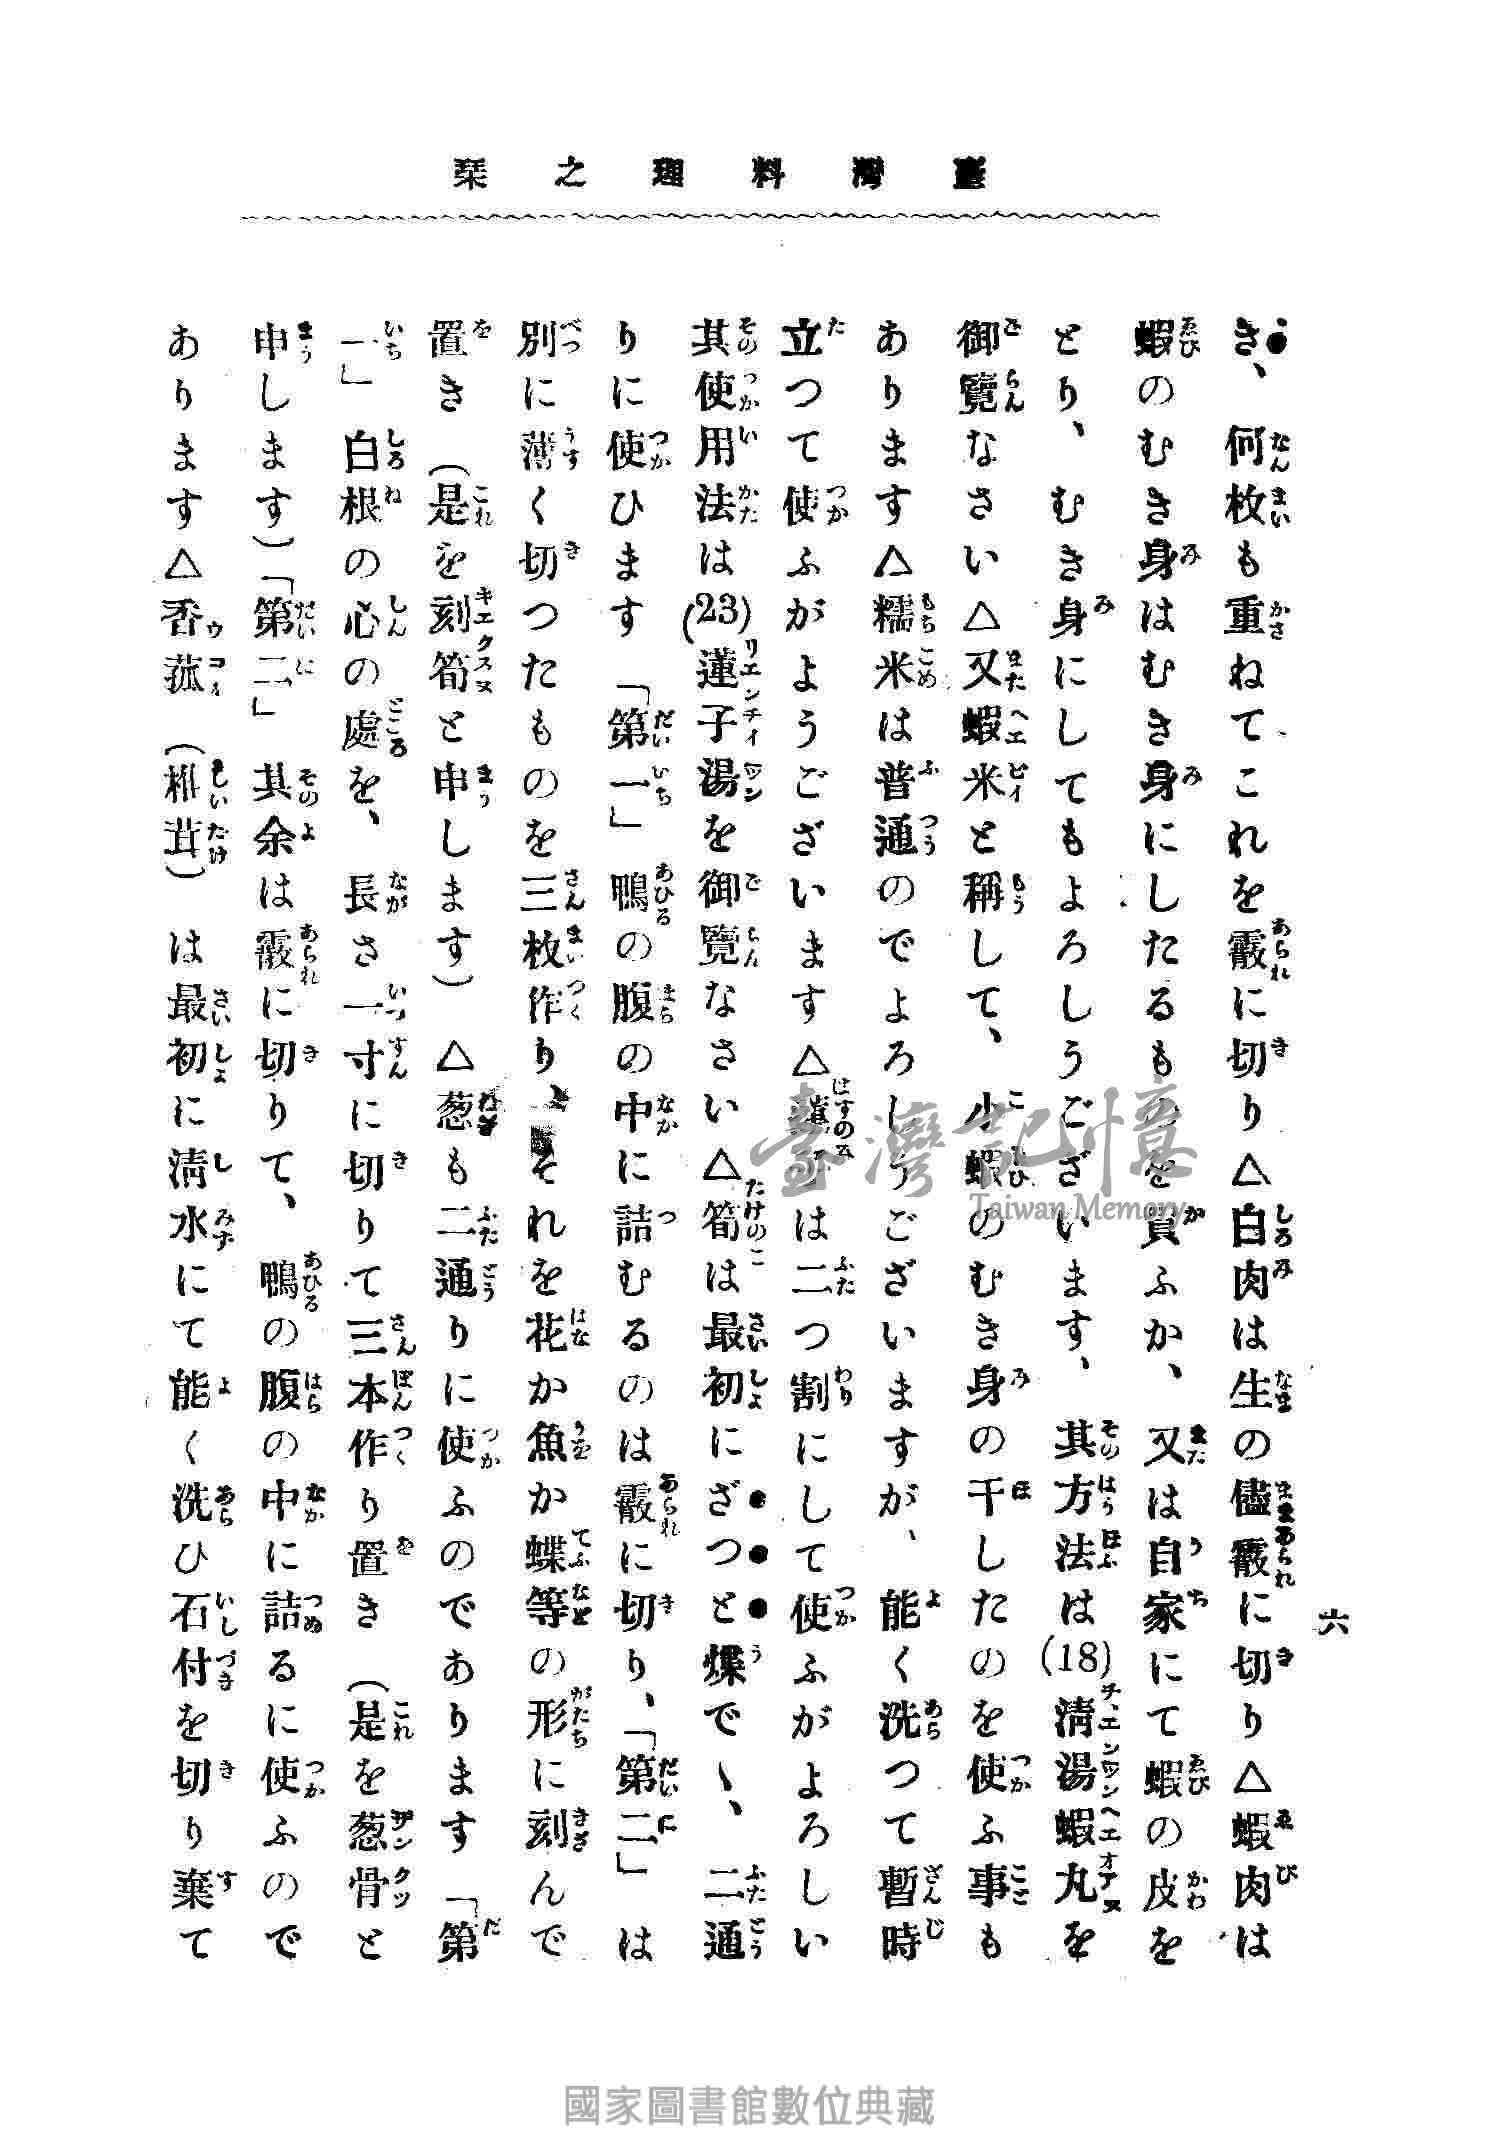 臺灣料理之栞
六
き、何枚も重ねてこれを霰に切り△白肉は生の儘霰に切り△蝦肉は
蝦のむき身はむき身にしたるものを買ふか、又は自家にて蝦の皮を
とり、むき身にしてもよろしうございます、其方法は(18)淸湯蝦丸を
御覽なさい△又蝦米と稱して、小蝦のむき身の干したのを使ふ事も
あります△糯米は普通のでよろしうございますが、能く洗つて暫時
立つて使ふがようございます△蓮子は二つ割にして使ふがよろしい
其使用法は(23)蓮子湯を御覽なさい△筍は最初にざつと煠で、二通
りに使ひます「第一」鴨の腹の中に詰むるのは霰に切り、「第二」は
別に薄く切つたものを三枚作り、それを花か魚か蝶等の形に刻んで
置き(是を刻筍と申します)△葱も二通りに使ふのであります「第
一」白根の心の處を、長さ一寸に切りて三本作り置き(是を葱骨と
申します)「第二」其余は霰に切りて、鴨の腹の中に詰るに使ふので
あります△香菰(椎茸)は最初に淸水にて能く洗ひ石付を切り棄て
臺灣記憶
Taiwan Memory
國家圖書館數位典藏